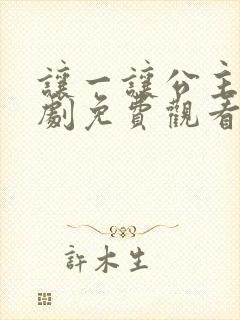 讓一讓公主
劇免費觀看
許木生